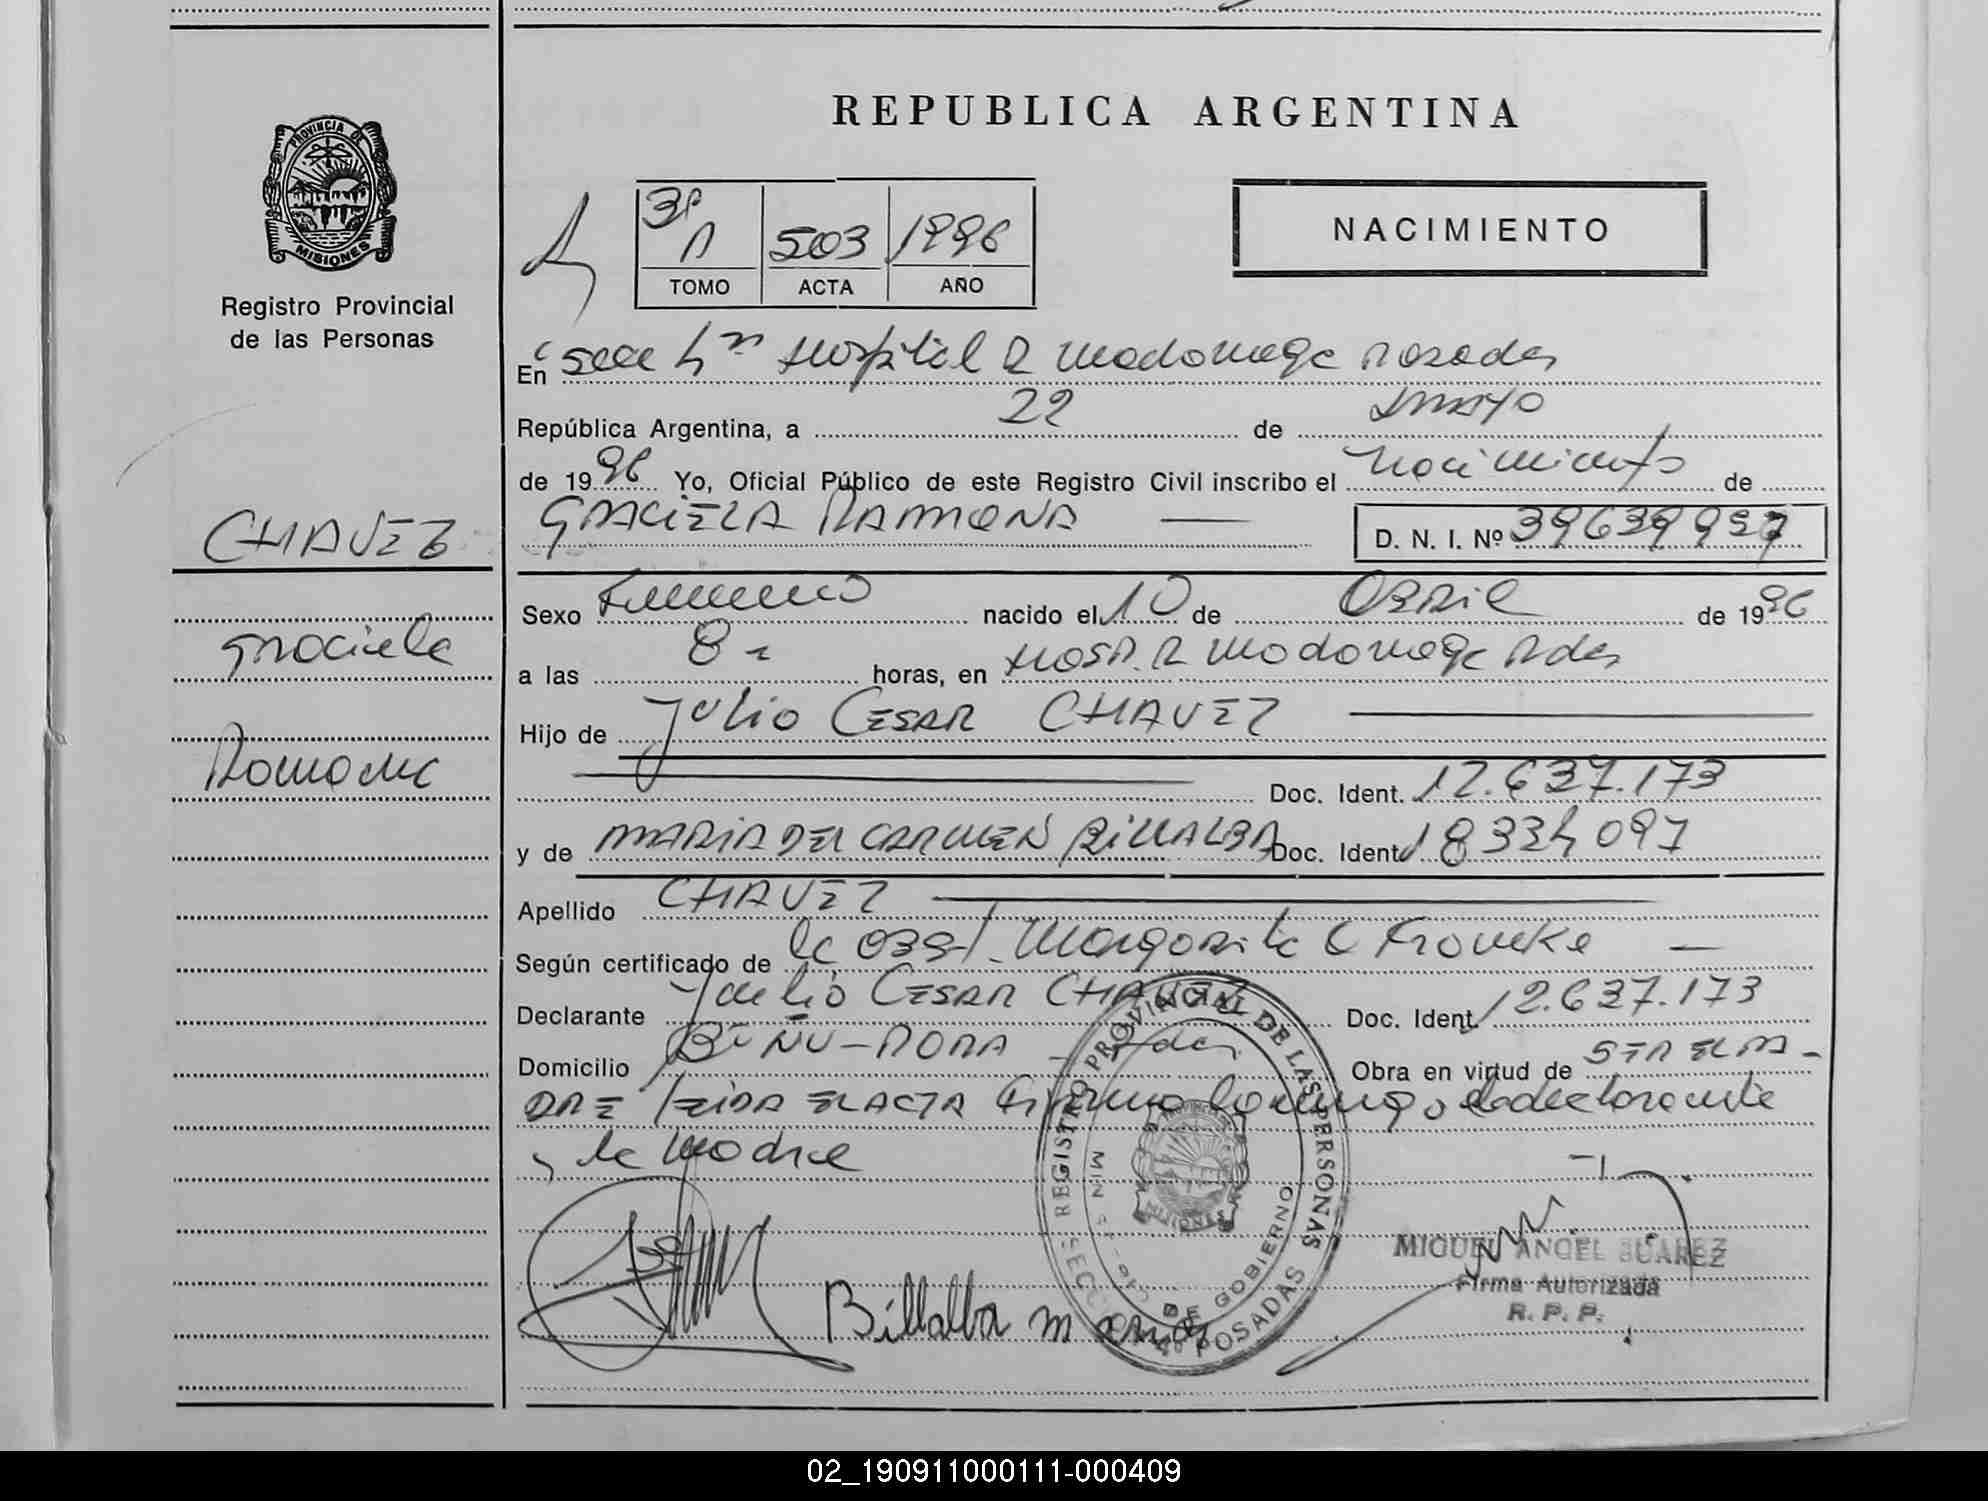 REPUBLICA ARGENTINA
PROVINCIA DE
MISIONES
Registro Provincial
de las Personas
NACIMIENTO
3º A 503 1996
TOMO ACTA AÑO
En Hospital R Madariaga Posadas
República Argentina, a 22 de MAYO
de 1996 Yo, Oficial Público de este Registro Civil inscribo el Nacimiento de
CHAVEZ
GRACIELA RAMONA
D. N. I. Nº 39639997
Sexo Femenino nacido el 10 de ABRIL de 1996
Graciela
a las 8 horas, en HOSP. R Madariaga Pdas
Hijo de Julio CESAR CHAVEZ
Ramona
Doc. Ident. 12.637.173
y de MARIA DEL CARMEN BILLALBA Doc. Ident. 18334097
Apellido CHAVEZ
Según certificado de la Obst. Margarita
Declarante Julio CESAR CHAVEZ Doc. Ident. 12.637.173
Domicilio Pdas Obra en virtud de SER EL PA-
DRE LEIDA EL ACTA firma conmigo el declarante
y la Madre
REGISTRO PROVINCIAL DE LAS PERSONAS
DE GOBIERNO
MISIONES
POSADAS
Billalba maria
MIGUEL ANGEL SUAREZ
Firma Autorizada
R. P. P.
02_190911000111-000409